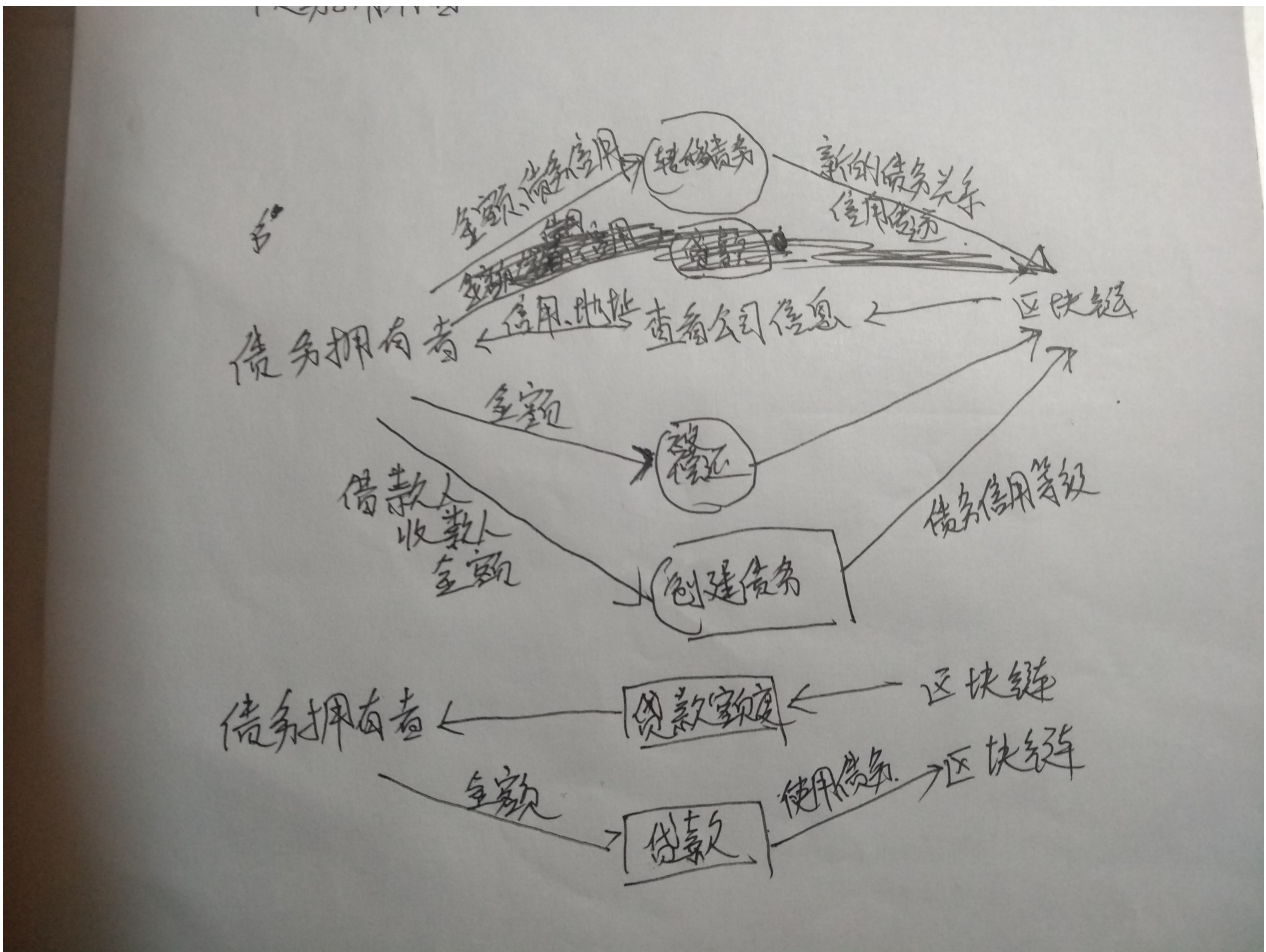 金额、债务信用
转移债务
新的债务关系
信用传递
贷款
信用、地址
查看公司信息
区块链
债务拥有者
金额
偿还
借款人
收款人
金额
创建债务
债务信用等级
债务拥有者
贷款额度
区块链
金额
贷款
使用债务
区块链